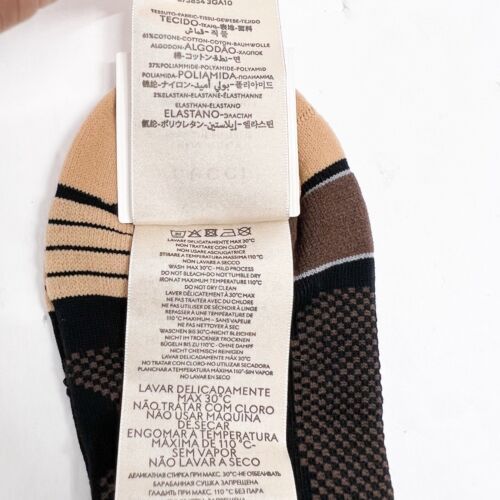 673854 3GA10
TESSUTO-FABRIC-TISSU-GEWEBE-TEJIDO
TECIDO-ТКАНЬ-表地-面料
قماش-직물
61%COTONE-COTTON-COTON-BAUMWOLLE
ALGODON-ALGODÃO-ХЛОПОК
棉-コットン-قطن-면
37%POLIAMMIDE-POLYAMIDE-POLYAMID
POLIAMIDA-POLIAMIDA-ПОЛИАМИД
ナイロン-بولي أميد-폴리아미드
2%ELASTAN-ELASTANE-ÉLASTHANNE
ELASTHAN-ELASTANO
ELASTANO-ЭЛАСТАН
氨纶-ポリウレタン-إيلاستين-엘라스틴
GUCCI
LAVARE DELICATAMENTE MAX 30°C
NON TRATTARE CON CLORO
NON USARE ASCIUGATRICE
STIRARE A TEMPERATURA MASSIMA 110°C
NON LAVARE A SECCO
WASH MAX 30°C - MILD PROCESS
DO NOT BLEACH-DO NOT TUMBLE DRY
IRON AT MAXIMUM TEMPERATURE 110°C
DO NOT DRY CLEAN
LAVER DÉLICATEMENT À 30°C MAX
NE PAS TRAITER AVEC DU CHLORE
NE PAS UTILISER DE SÉCHOIR À LINGE
REPASSER À UNE TEMPÉRATURE DE
110 °C MAXIMUM - SANS VAPEUR
NE PAS NETTOYER À SEC
WASCHEN BIS 30°C-NICHT BLEICHEN
NICHT IM TROCKNER TROCKNEN
BÜGELN BIS ZU 110°C - OHNE DAMPF
NICHT CHEMISCH REINIGEN
LAVAR DELICADAMENTE MÁX 30°C
NO TRATAR CON CLORO-NO UTILIZAR SECADORA
PLANCHAR A TEMPERATURA MÁXIMA 110°-SIN VAPOR
NO LAVAR EN SECO
LAVAR DELICADAMENTE
MÁX 30°C
NÃO TRATAR COM CLORO
NÃO USAR MÁQUINA
DE SECAR
ENGOMAR À TEMPERATURA
MÁXIMA DE 110°C-
SEM VAPOR
NÃO LAVAR A SECO
ДЕЛИКАТНАЯ СТИРКА ПРИ МАКС. 30°С-НЕ ОТБЕЛИВАТЬ
БАРАБАННАЯ СУШКА ЗАПРЕЩЕНА
ГЛАДИТЬ ПРИ МАКС. 110 °С БЕЗ ПАРА